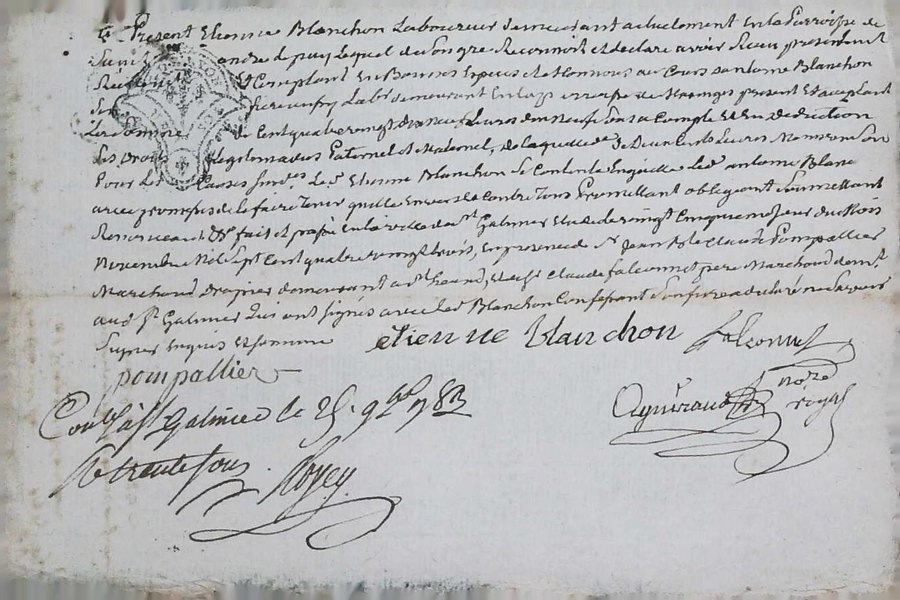 Fut Present Etienne Blanchon Laboureur demeurant actuellement En la Parroisse de
Saint andre le puy Lequel de Son gre Reconnoit et declare avoir Receu presentement
Reellement Et Comptant En Bonnes Especes et de Monnoye au Cours d'antoine Blanchon
Son frere Lab.r demeurant En la parroisse de present Et acceptant
La somme de Cent quatre vingt dix neuf Livres dix neuf sous a Compte Et En deduction
des Droits Legitimaires Paternel Et Maternel, de laquelle de Deux Cents Livres
Pour Les Causes Susd.es Led. Etienne Blanchon Se Contente En quitte led. antoine Blanchon
avec promesse de le faire tenir quitte Envers Et Contre Tous Promettant obligeant Soumettant
Renonceant &a fait Et passé En la ville de St Galmier Etude Le vingt Cinquieme Jour du Mois
Novembre Mil Sept Cent quatre vingt trois, En presence de Sr Jean Claude Pompallier
Marchand Drapier demeurant a et de Sr Claude falconnet pere Marchand dem.t
aud. St Galmier Qui ont signés avec led. Blanchon
Signer Enquis Et Sommé
etienne blanchon falconnet
pompallier
Aguiraud no.re royal
Con.lé à St Galmier le 25. 9bre 1783
Rc trente sous Royey